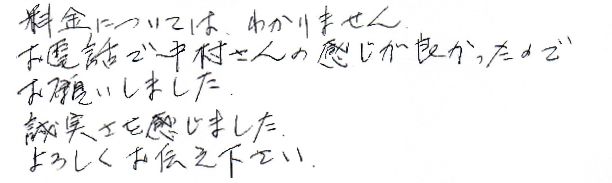 料金については、わかりません.
お電話で中村さんの感じが良かったので
お願いしました.
誠実さを感じました.
よろしくお伝え下さい.